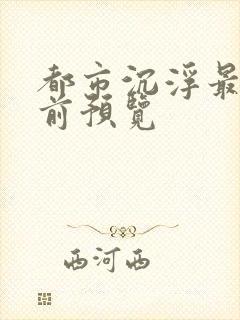 都市沉浮最
前預覽
西河西